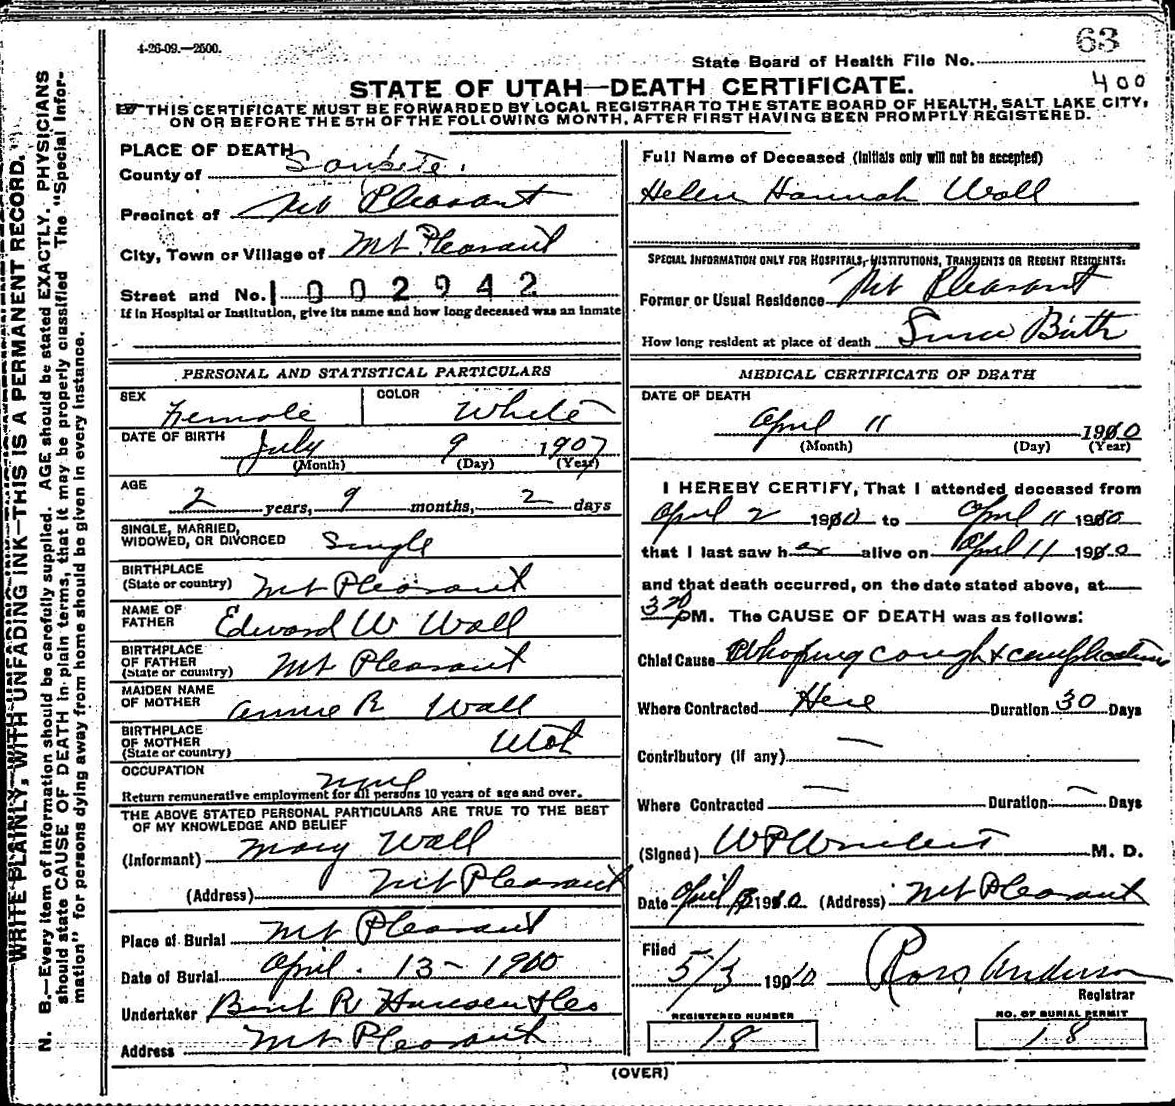 4-26-09.—2500.
63
State Board of Health File No.
400
STATE OF UTAH—DEATH CERTIFICATE.
THIS CERTIFICATE MUST BE FORWARDED BY LOCAL REGISTRAR TO THE STATE BOARD OF HEALTH, SALT LAKE CITY,
ON OR BEFORE THE 5TH OF THE FOLLOWING MONTH, AFTER FIRST HAVING BEEN PROMPTLY REGISTERED.
WRITE PLAINLY, WITH UNFADING INK—THIS IS A PERMANENT RECORD.
N. B.—Every item of information should be carefully supplied. AGE should be stated EXACTLY. PHYSICIANS
should state CAUSE OF DEATH in plain terms, that it may be properly classified. The "Special Infor-
mation" for persons dying away from home should be given in every instance.
PLACE OF DEATH
County of Sanpete.
Precinct of Mt Pleasant
City, Town or Village of Mt Pleasant
Street and No. 1002942
If in Hospital or Institution, give its name and how long deceased was an inmate
PERSONAL AND STATISTICAL PARTICULARS
SEX Female COLOR White
DATE OF BIRTH July 9 1907
(Month) (Day) (Year)
AGE
2 years, 9 months, 2 days
SINGLE, MARRIED,
WIDOWED, OR DIVORCED Single
BIRTHPLACE
(State or country) Mt Pleasant
NAME OF
FATHER Edward W Wall
BIRTHPLACE
OF FATHER
(State or country) Mt Pleasant
MAIDEN NAME
OF MOTHER Annie R Wall
BIRTHPLACE
OF MOTHER
(State or country) Utah
OCCUPATION
Return remunerative employment for all persons 10 years of age and over.
THE ABOVE STATED PERSONAL PARTICULARS ARE TRUE TO THE BEST
OF MY KNOWLEDGE AND BELIEF
(Informant) Mary Wall
(Address) Mt Pleasant
Place of Burial Mt Pleasant
Date of Burial April. 13 - 1900
Undertaker R Hansen & Co
Address Mt Pleasant
Full Name of Deceased (Initials only will not be accepted)
Helen Hannah Wall
SPECIAL INFORMATION ONLY FOR HOSPITALS, INSTITUTIONS, TRANSIENTS OR RECENT RESIDENTS:
Former or Usual Residence Mt Pleasant
How long resident at place of death Since Birth
MEDICAL CERTIFICATE OF DEATH
DATE OF DEATH
April 11 1910
(Month) (Day) (Year)
I HEREBY CERTIFY, That I attended deceased from
April 2 1910 to April 11 1910
that I last saw her alive on April 11 1910
and that death occurred, on the date stated above, at
3 20 PM. The CAUSE OF DEATH was as follows:
Chief Cause Whoping cough & complications
Where Contracted Here Duration 30 Days
Contributory (if any) —
Where Contracted — Duration — Days
(Signed) M. D.
Date April 1910 (Address) Mt Pleasant
Filed
5/3 1910 Ross Anderson
Registrar
REGISTERED NUMBER
18
NO. OF BURIAL PERMIT
18
(OVER)